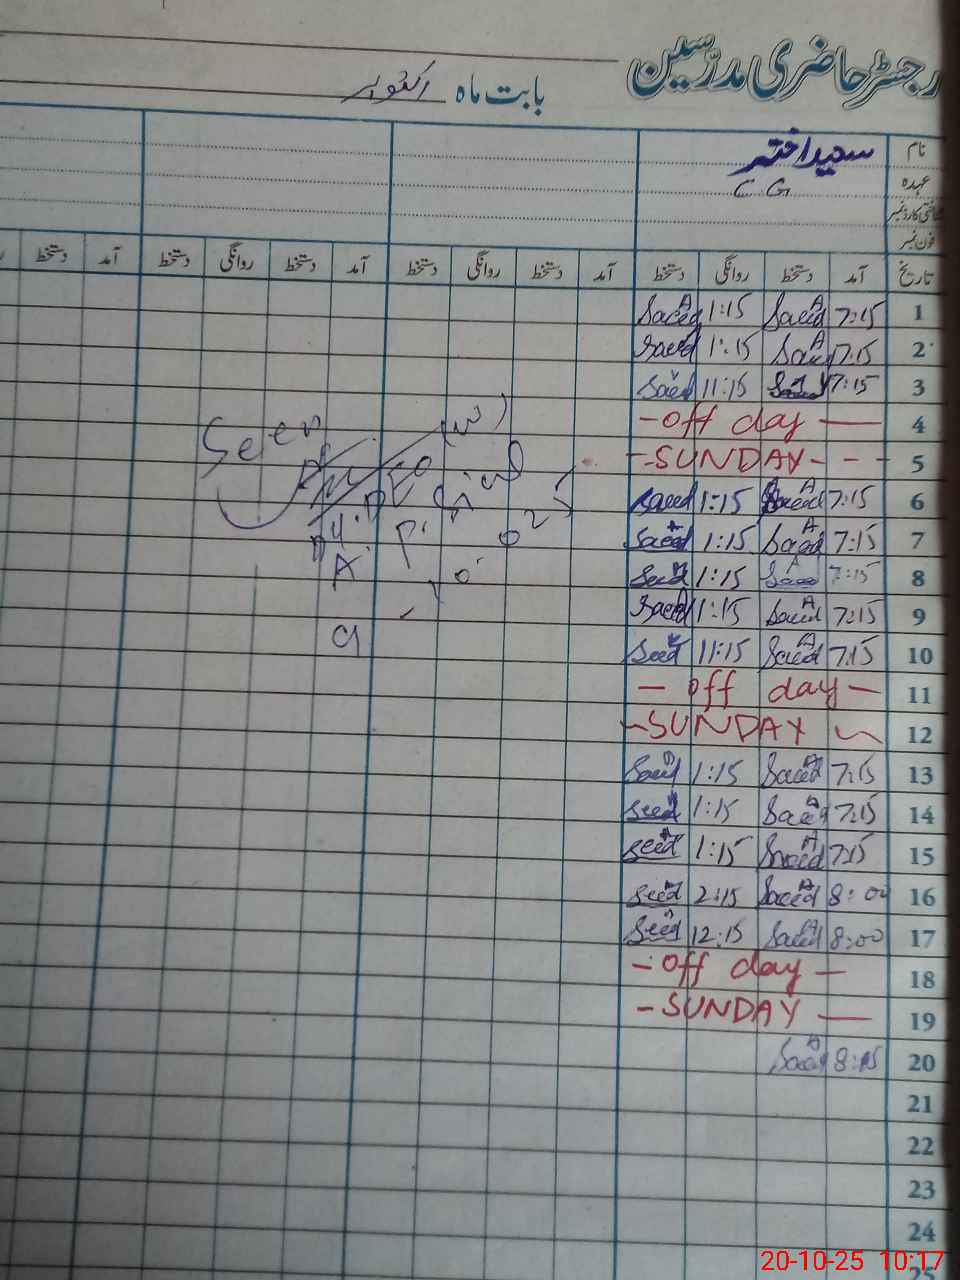 رجسٹر حاضری مدرّسین
بابت ماہ اکتوبر
نام سعید اختر
عہدہ C G
فون نمبر
تاریخ آمد دستخط روانگی دستخط آمد دستخط روانگی دستخط آمد دستخط روانگی دستخط آمد دستخط
1 7:15 Saeed A 1:15 Saeed A
2 7:15 A 1:15 Saeed
3 7:15 11:15 Saeed
4 - off day -
5 - SUNDAY - - -
6 7:15 Saeed A 1:15 Saeed
7 7:15 Saeed A 1:15 Saeed
8 7:15 Saeed A 1:15
9 7:15 Saeed A 1:15 Saeed
10 7:15 Saeed A 11:15
11 - off day -
12 ~ SUNDAY ~
13 7:15 Saeed 1:15
14 7:15 Saeed 1:15 Seed
15 7:15 Saeed A 1:15 Seed
16 8:00 Saeed A 2:15 Seed
17 8:00 Saeed A 12:15 Seed
18 - off day -
19 - SUNDAY -
20 8:15 Saeed
21
22
23
24
25
Seen
(W)
20-10-25 10:17